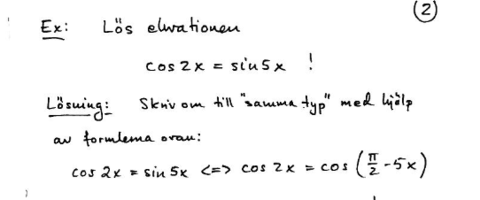 (2)
Ex: Lös ekvationen
cos 2x = sin 5x !
Lösning: Skriv om till "samma typ" med hjälp
av formlerna ovan:
cos 2x = sin 5x <=> cos 2x = cos (π/2 - 5x)